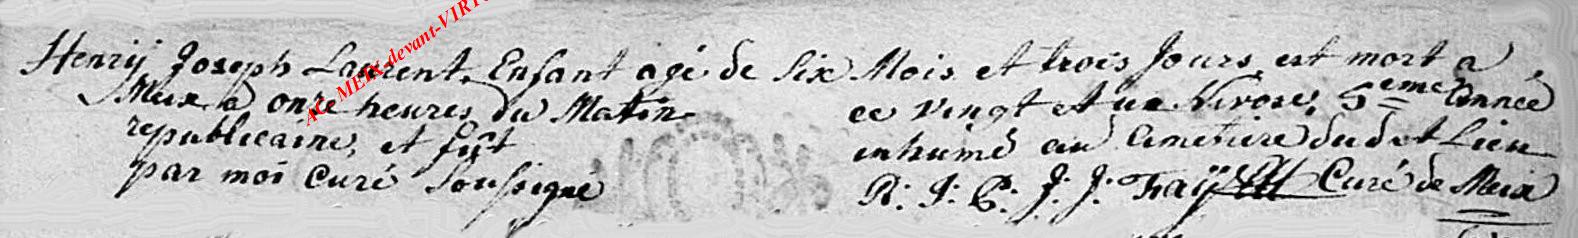 Henry Joseph Laurent, Enfant agé de Six Mois et trois Jours est mort a
Meix a onze heures du Matin ce vingt et un Nivose, 5eme Année
republicaine, et fût inhumé au Cimetiere dudit Lieu
par moi Curé Soussigné R. I. P. J. J. Curé de Meix
AC MEIX-devant-VIRTON